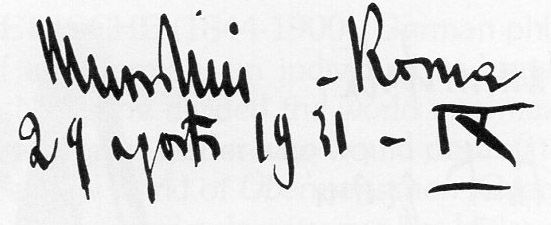 Mussolini - Roma
29 agosto 1931 - IX